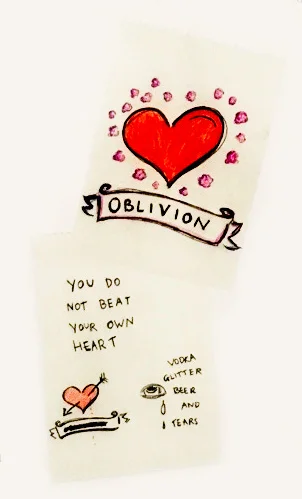 OBLIVION
YOU DO
NOT BEAT
YOUR OWN
HEART
VODKA
GLITTER
BEER
AND
TEARS